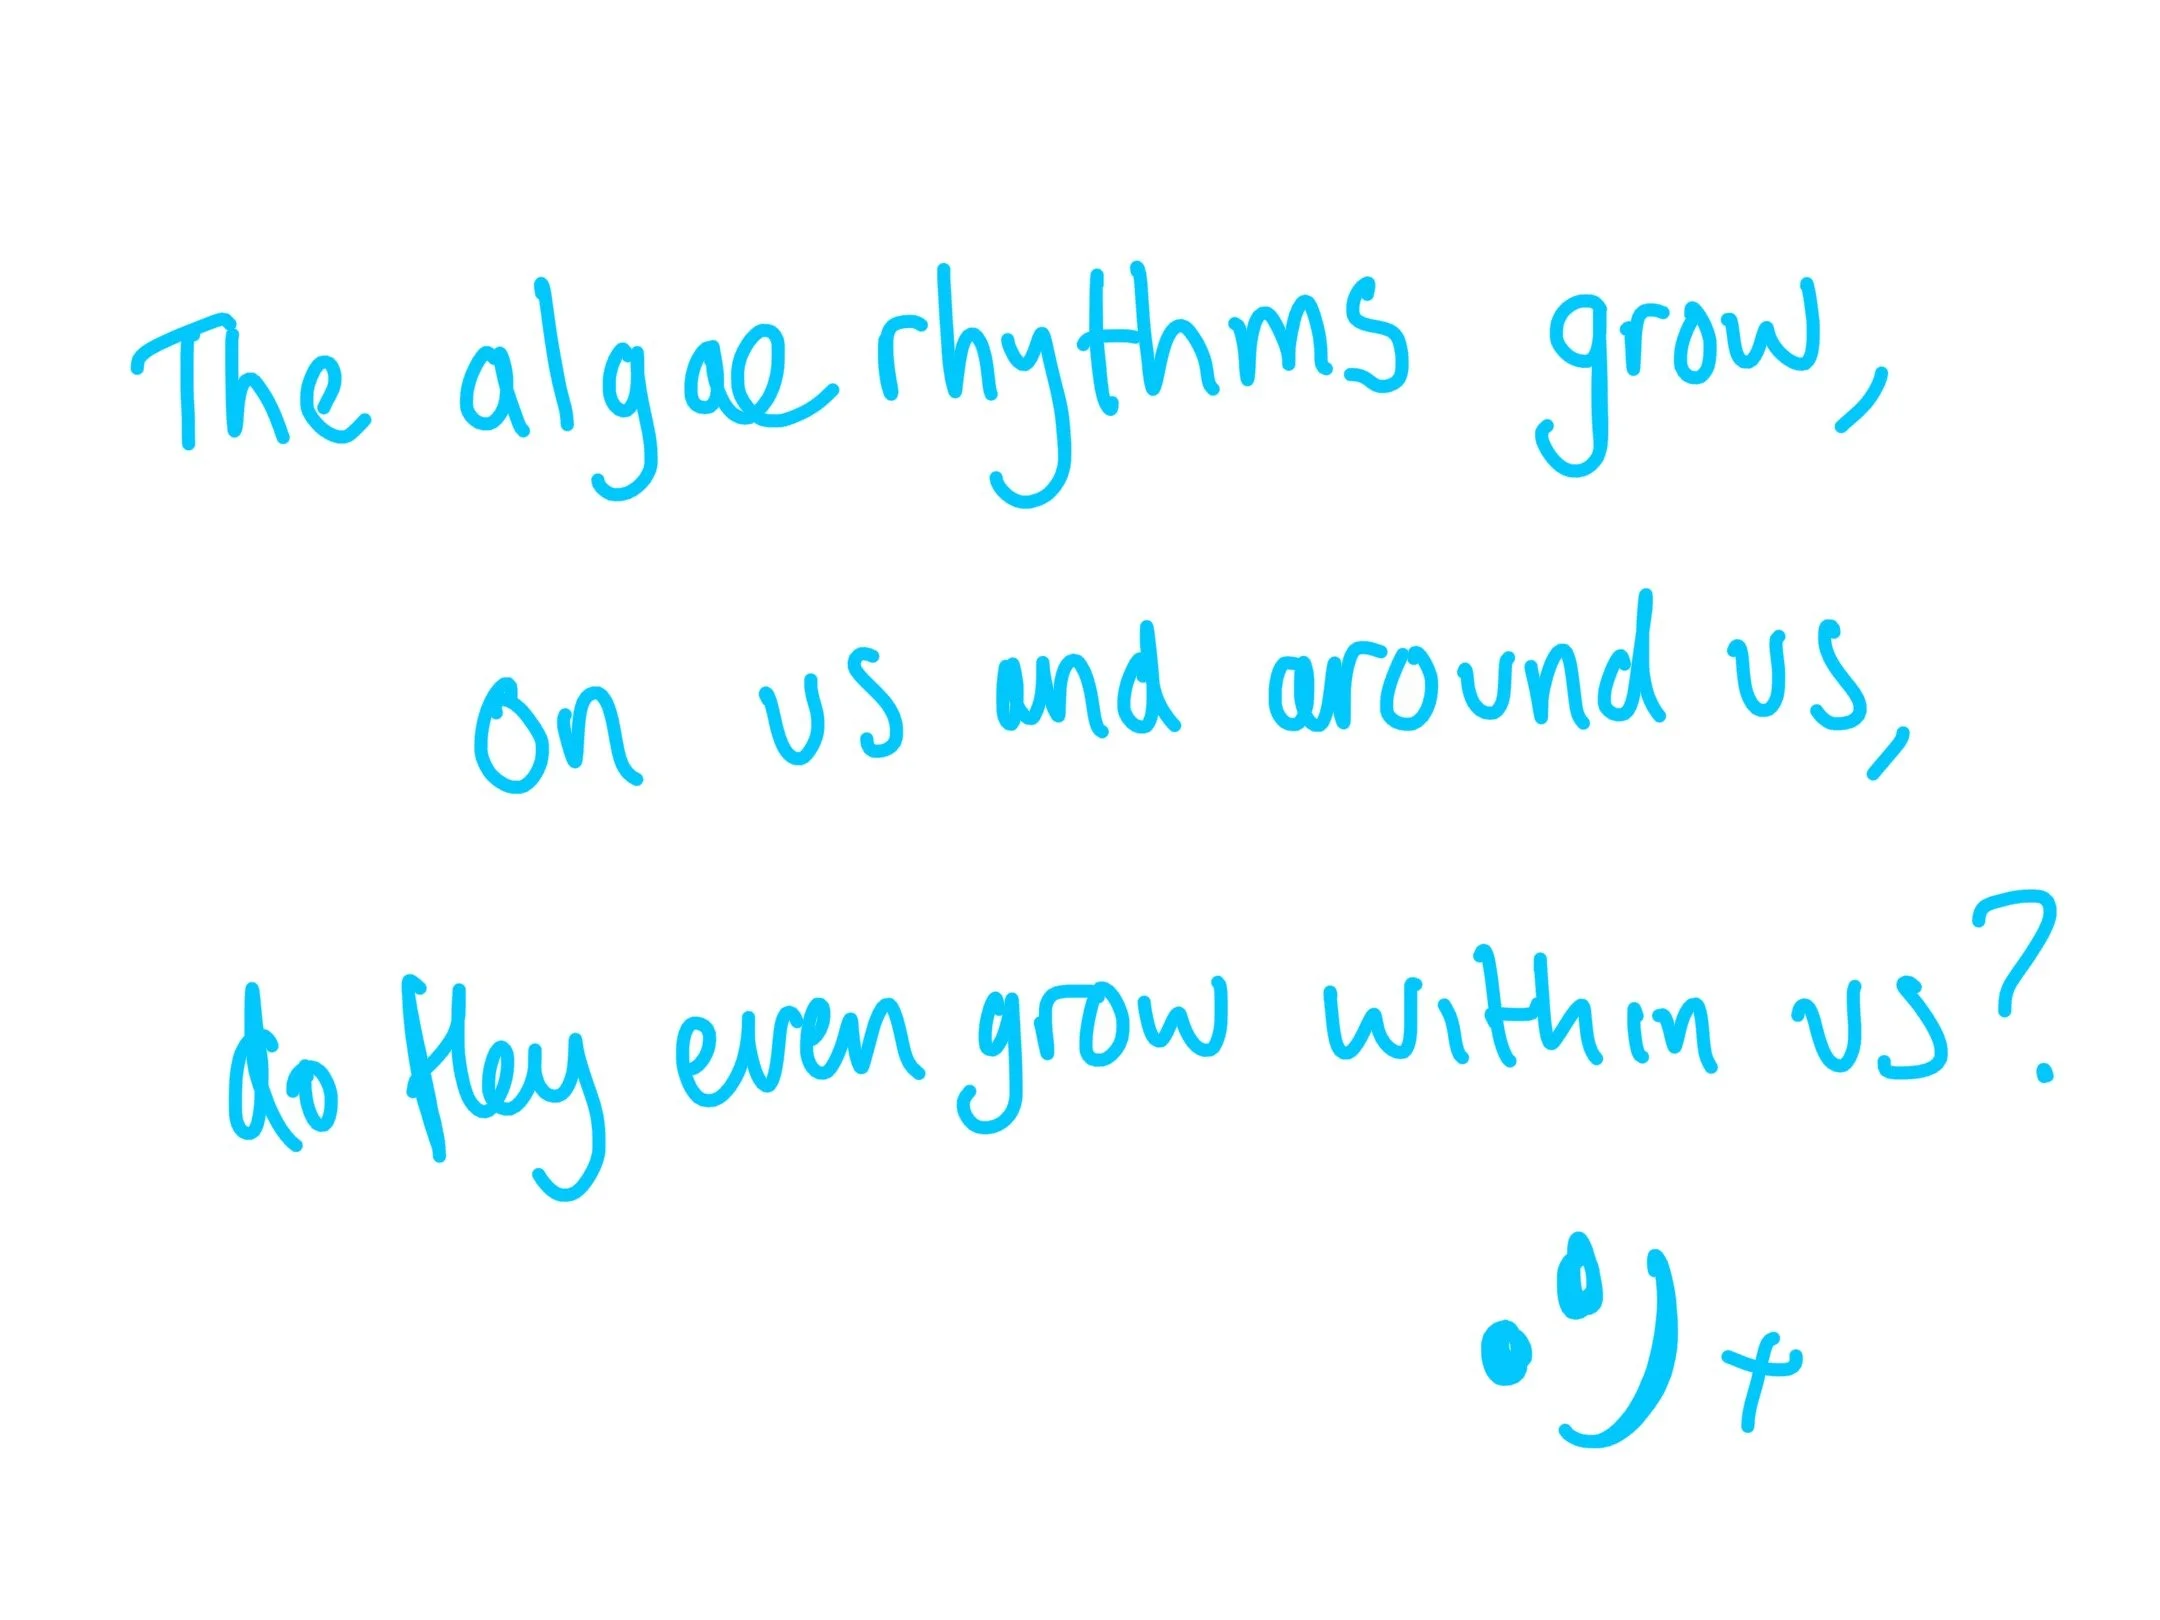 The algae rhythms grow,
on us and around us,
do they even grow within us?